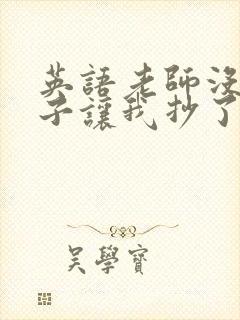 英語老師沒
子讓我抄了
吳學寶